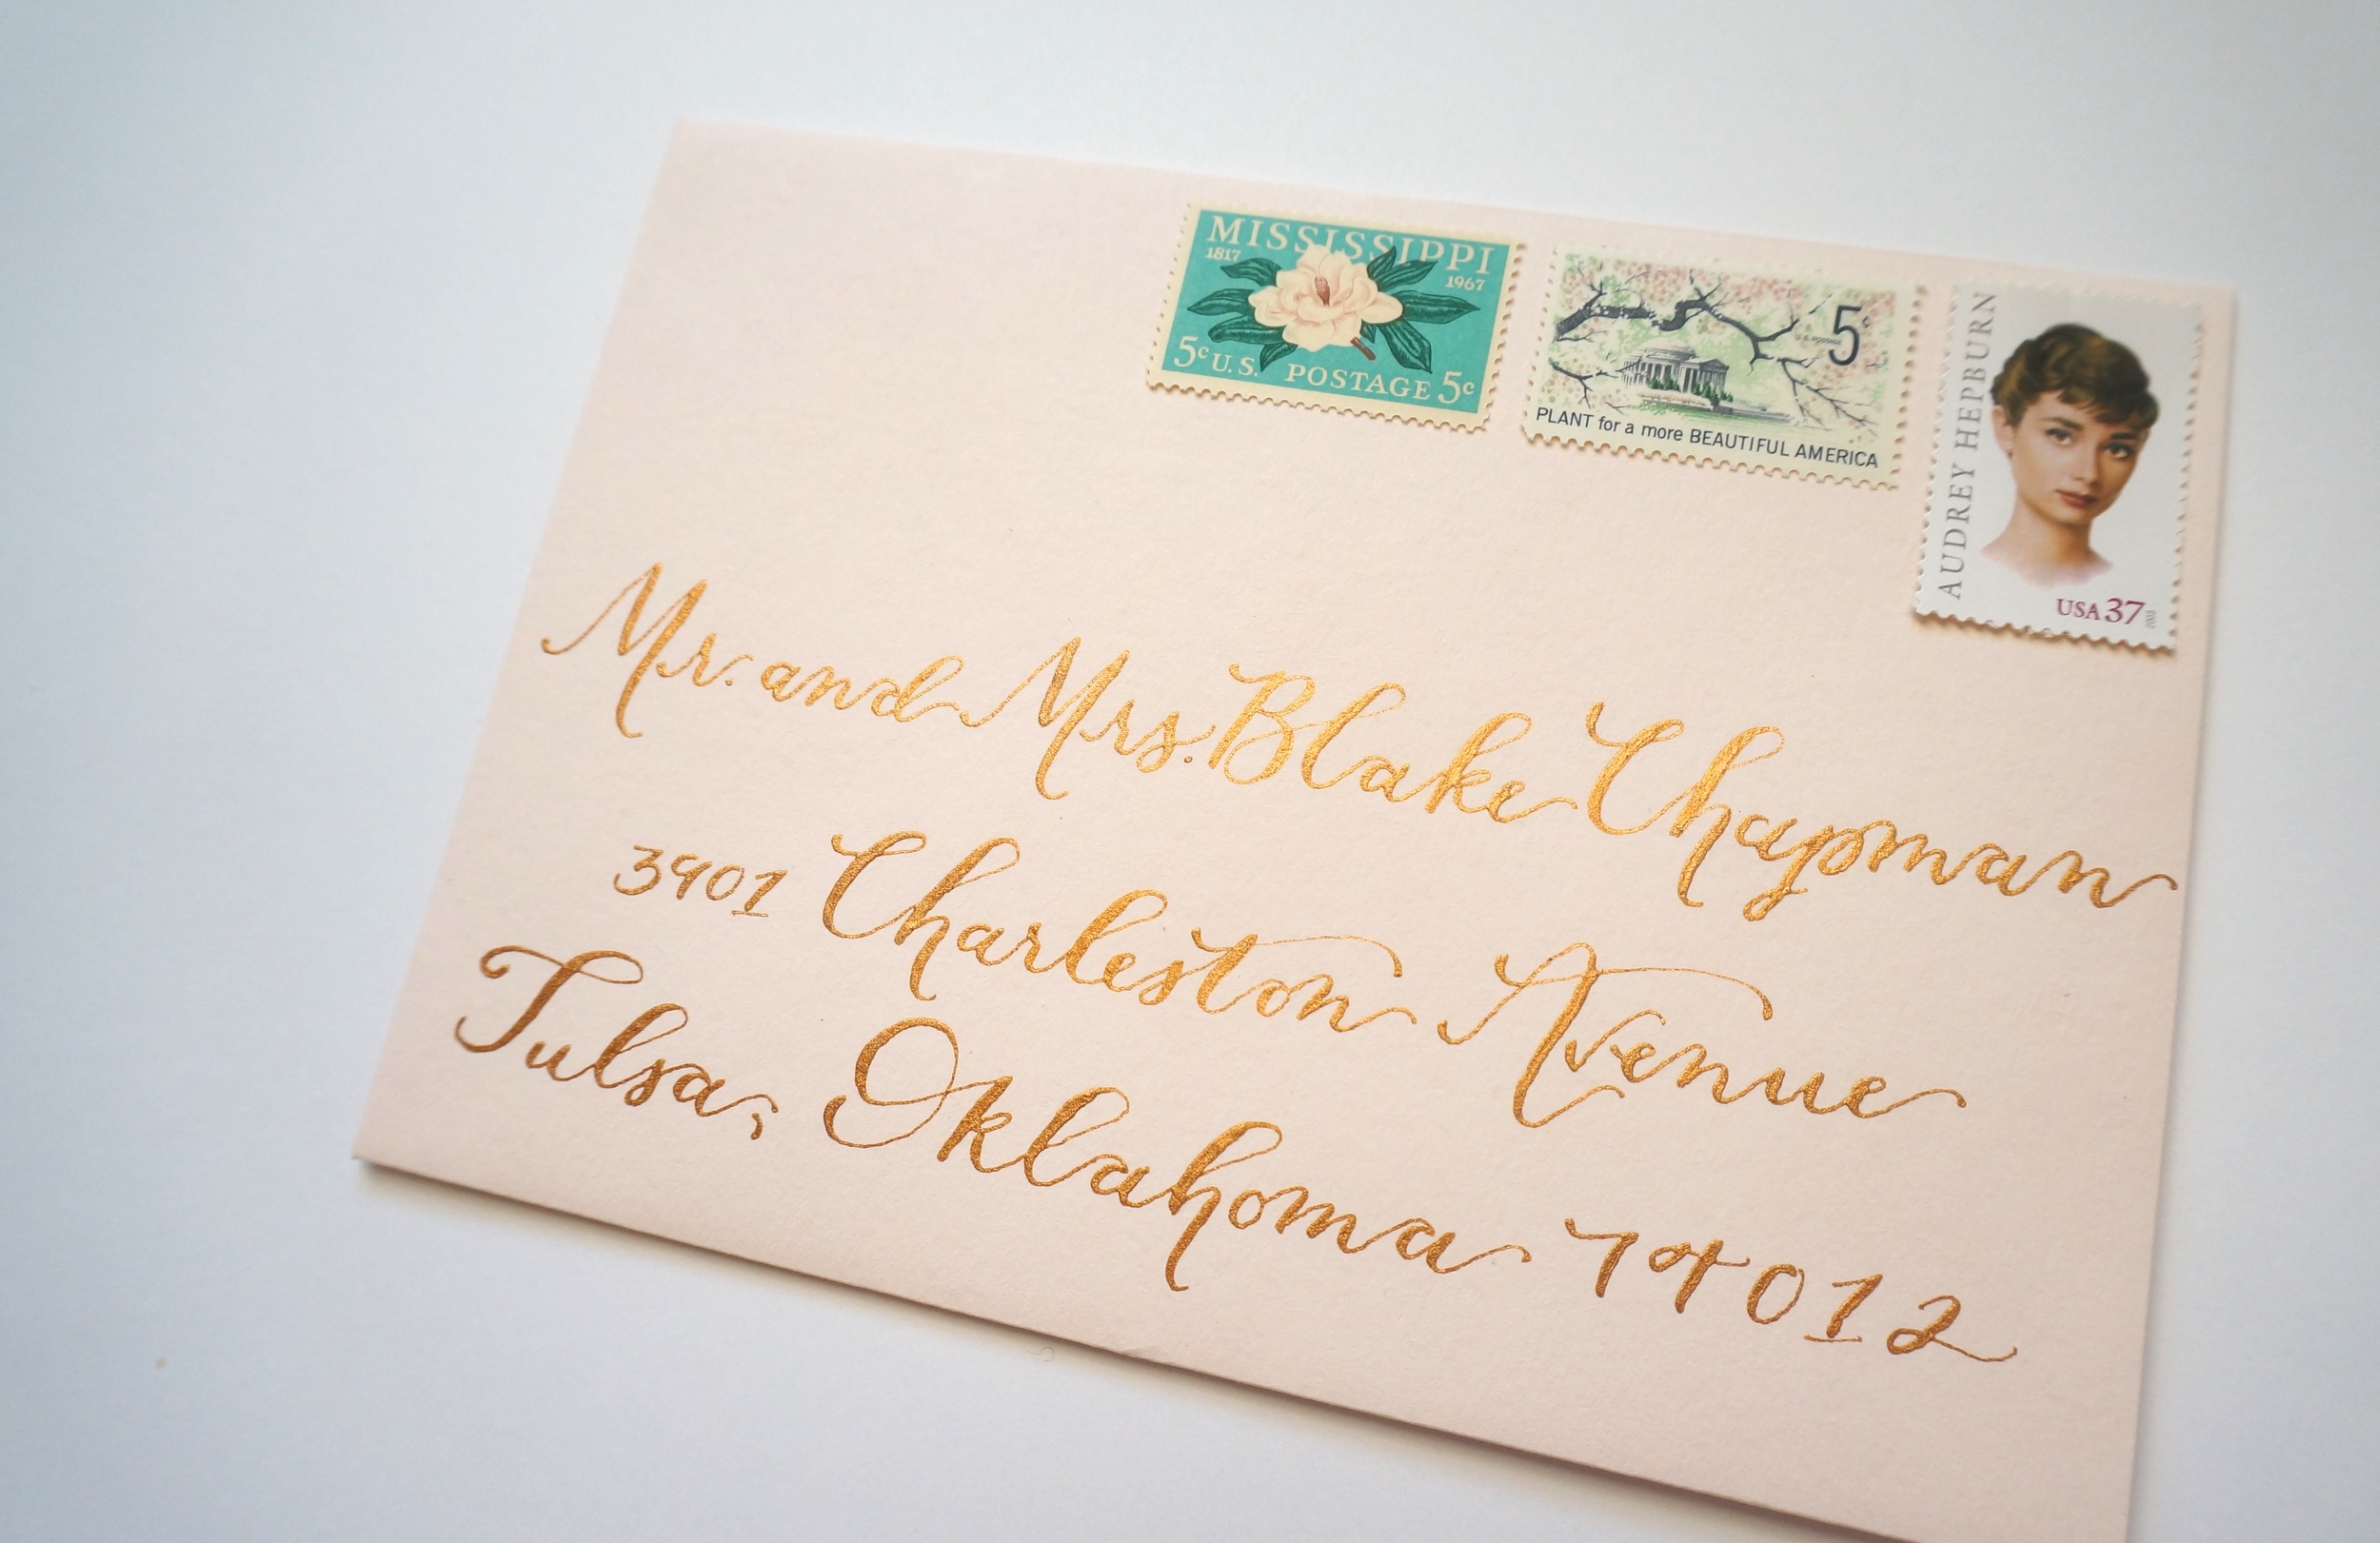 MISSISSIPPI
1817
1967
5c U.S. POSTAGE 5c
5c
U.S. POSTAGE
PLANT for a more BEAUTIFUL AMERICA
AUDREY HEPBURN
USA 37
2003
Mr. and Mrs. Blake Chapman
3901 Charleston Avenue
Tulsa, Oklahoma 74012